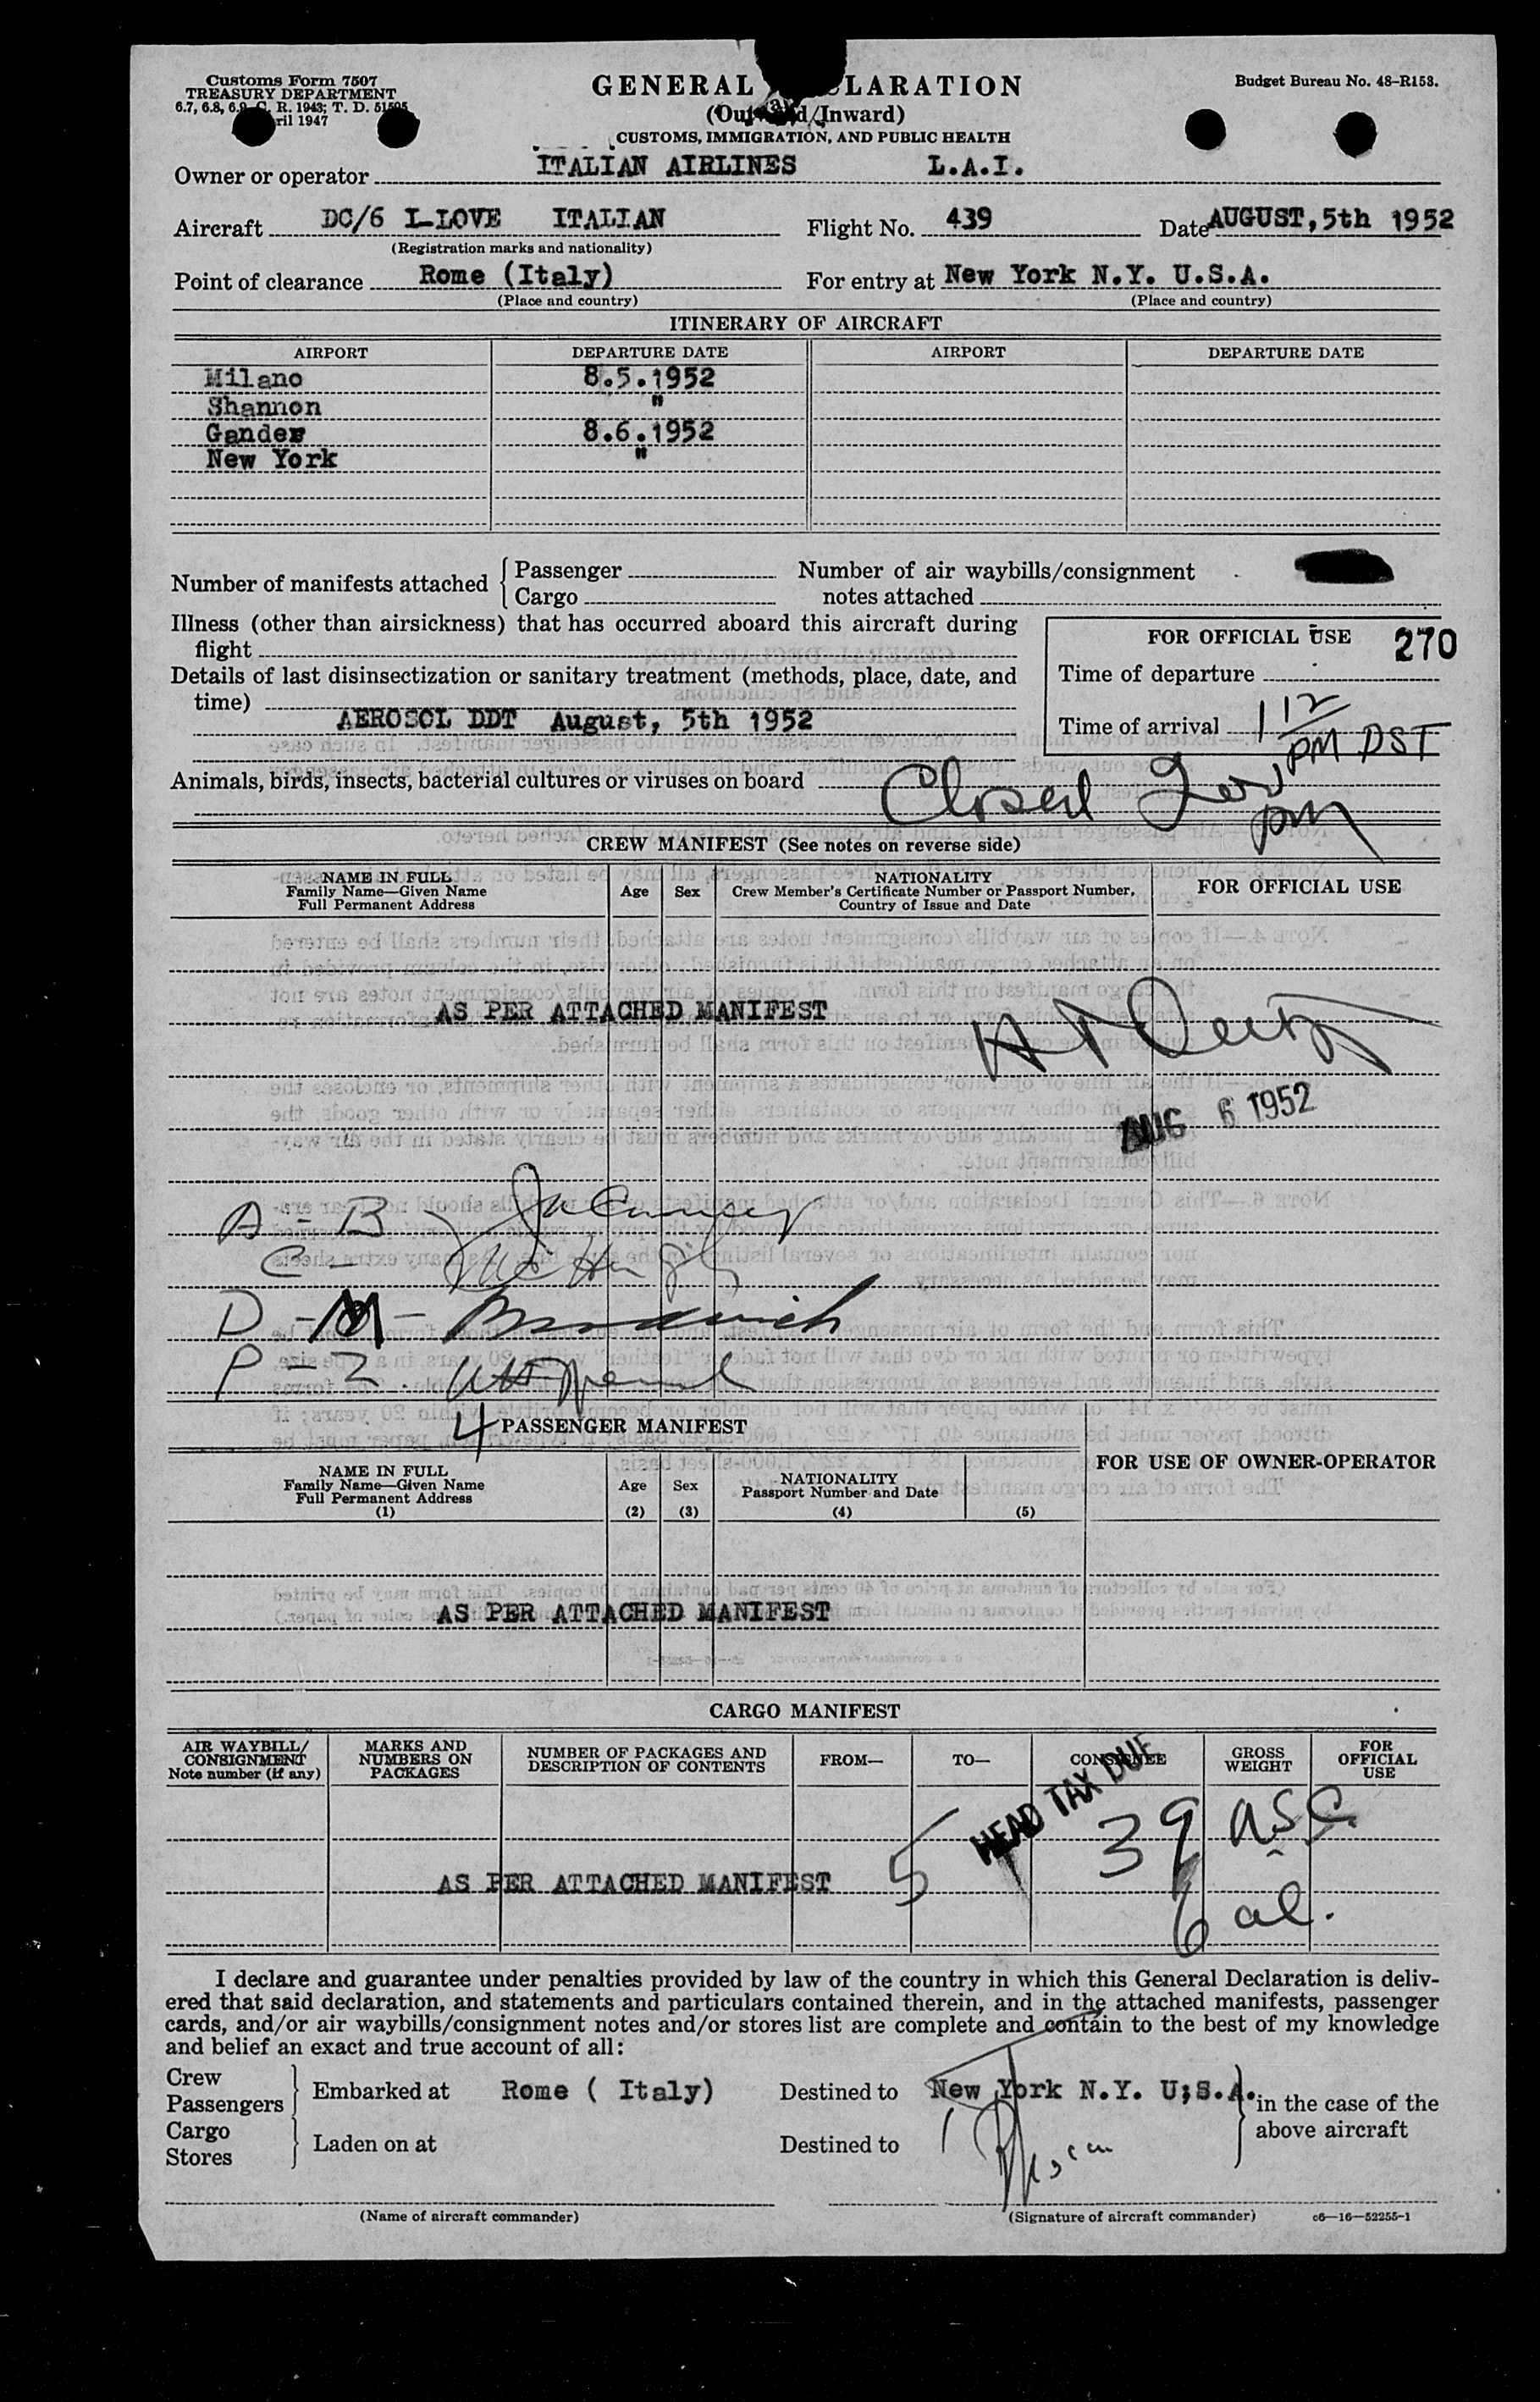 Customs Form 7507
TREASURY DEPARTMENT
6.7, 6.8, 6.9, C. R. 1943; T. D. 51595
ril 1947
GENERAL LARATION
(Out d/Inward)
CUSTOMS, IMMIGRATION, AND PUBLIC HEALTH
Budget Bureau No. 48-R153.
Owner or operator ITALIAN AIRLINES L.A.I.
Aircraft DC/6 I-LOVE ITALIAN Flight No. 439 Date AUGUST, 5th 1952
(Registration marks and nationality)
Point of clearance Rome (Italy) For entry at New York N.Y. U.S.A.
(Place and country) (Place and country)
ITINERARY OF AIRCRAFT
AIRPORT DEPARTURE DATE AIRPORT DEPARTURE DATE
Milano 8.5.1952
Shannon "
Gander 8.6.1952
New York "
Number of manifests attached { Passenger Number of air waybills/consignment
Cargo notes attached
Illness (other than airsickness) that has occurred aboard this aircraft during
flight
FOR OFFICIAL USE 270
Details of last disinsectization or sanitary treatment (methods, place, date, and
time)
Time of departure
AEROSOL DDT August, 5th 1952
Time of arrival 1 12 PM DST
Animals, birds, insects, bacterial cultures or viruses on board
Closed pm
CREW MANIFEST (See notes on reverse side)
NAME IN FULL
Family Name—Given Name
Full Permanent Address
Age Sex
NATIONALITY
Crew Member's Certificate Number or Passport Number,
Country of Issue and Date
FOR OFFICIAL USE
AS PER ATTACHED MANIFEST
AUG 6 1952
A - B
C -
D - M -
P - Z
4 PASSENGER MANIFEST
NAME IN FULL
Family Name—Given Name
Full Permanent Address
(1)
Age
(2)
Sex
(3)
NATIONALITY
Passport Number and Date
(4) (5)
FOR USE OF OWNER-OPERATOR
AS PER ATTACHED MANIFEST
CARGO MANIFEST
AIR WAYBILL/
CONSIGNMENT
Note number (if any)
MARKS AND
NUMBERS ON
PACKAGES
NUMBER OF PACKAGES AND
DESCRIPTION OF CONTENTS
FROM— TO— CONSIGNEE
GROSS
WEIGHT
FOR
OFFICIAL
USE
HEAD TAX DUE
5 39
AS PER ATTACHED MANIFEST
6 al.
I declare and guarantee under penalties provided by law of the country in which this General Declaration is deliv-
ered that said declaration, and statements and particulars contained therein, and in the attached manifests, passenger
cards, and/or air waybills/consignment notes and/or stores list are complete and contain to the best of my knowledge
and belief an exact and true account of all:
Crew
Passengers
Embarked at Rome ( Italy) Destined to New York N.Y. U;S.A.
in the case of the
above aircraft
Cargo
Stores
Laden on at Destined to
(Name of aircraft commander) (Signature of aircraft commander) c6—16—52255-1